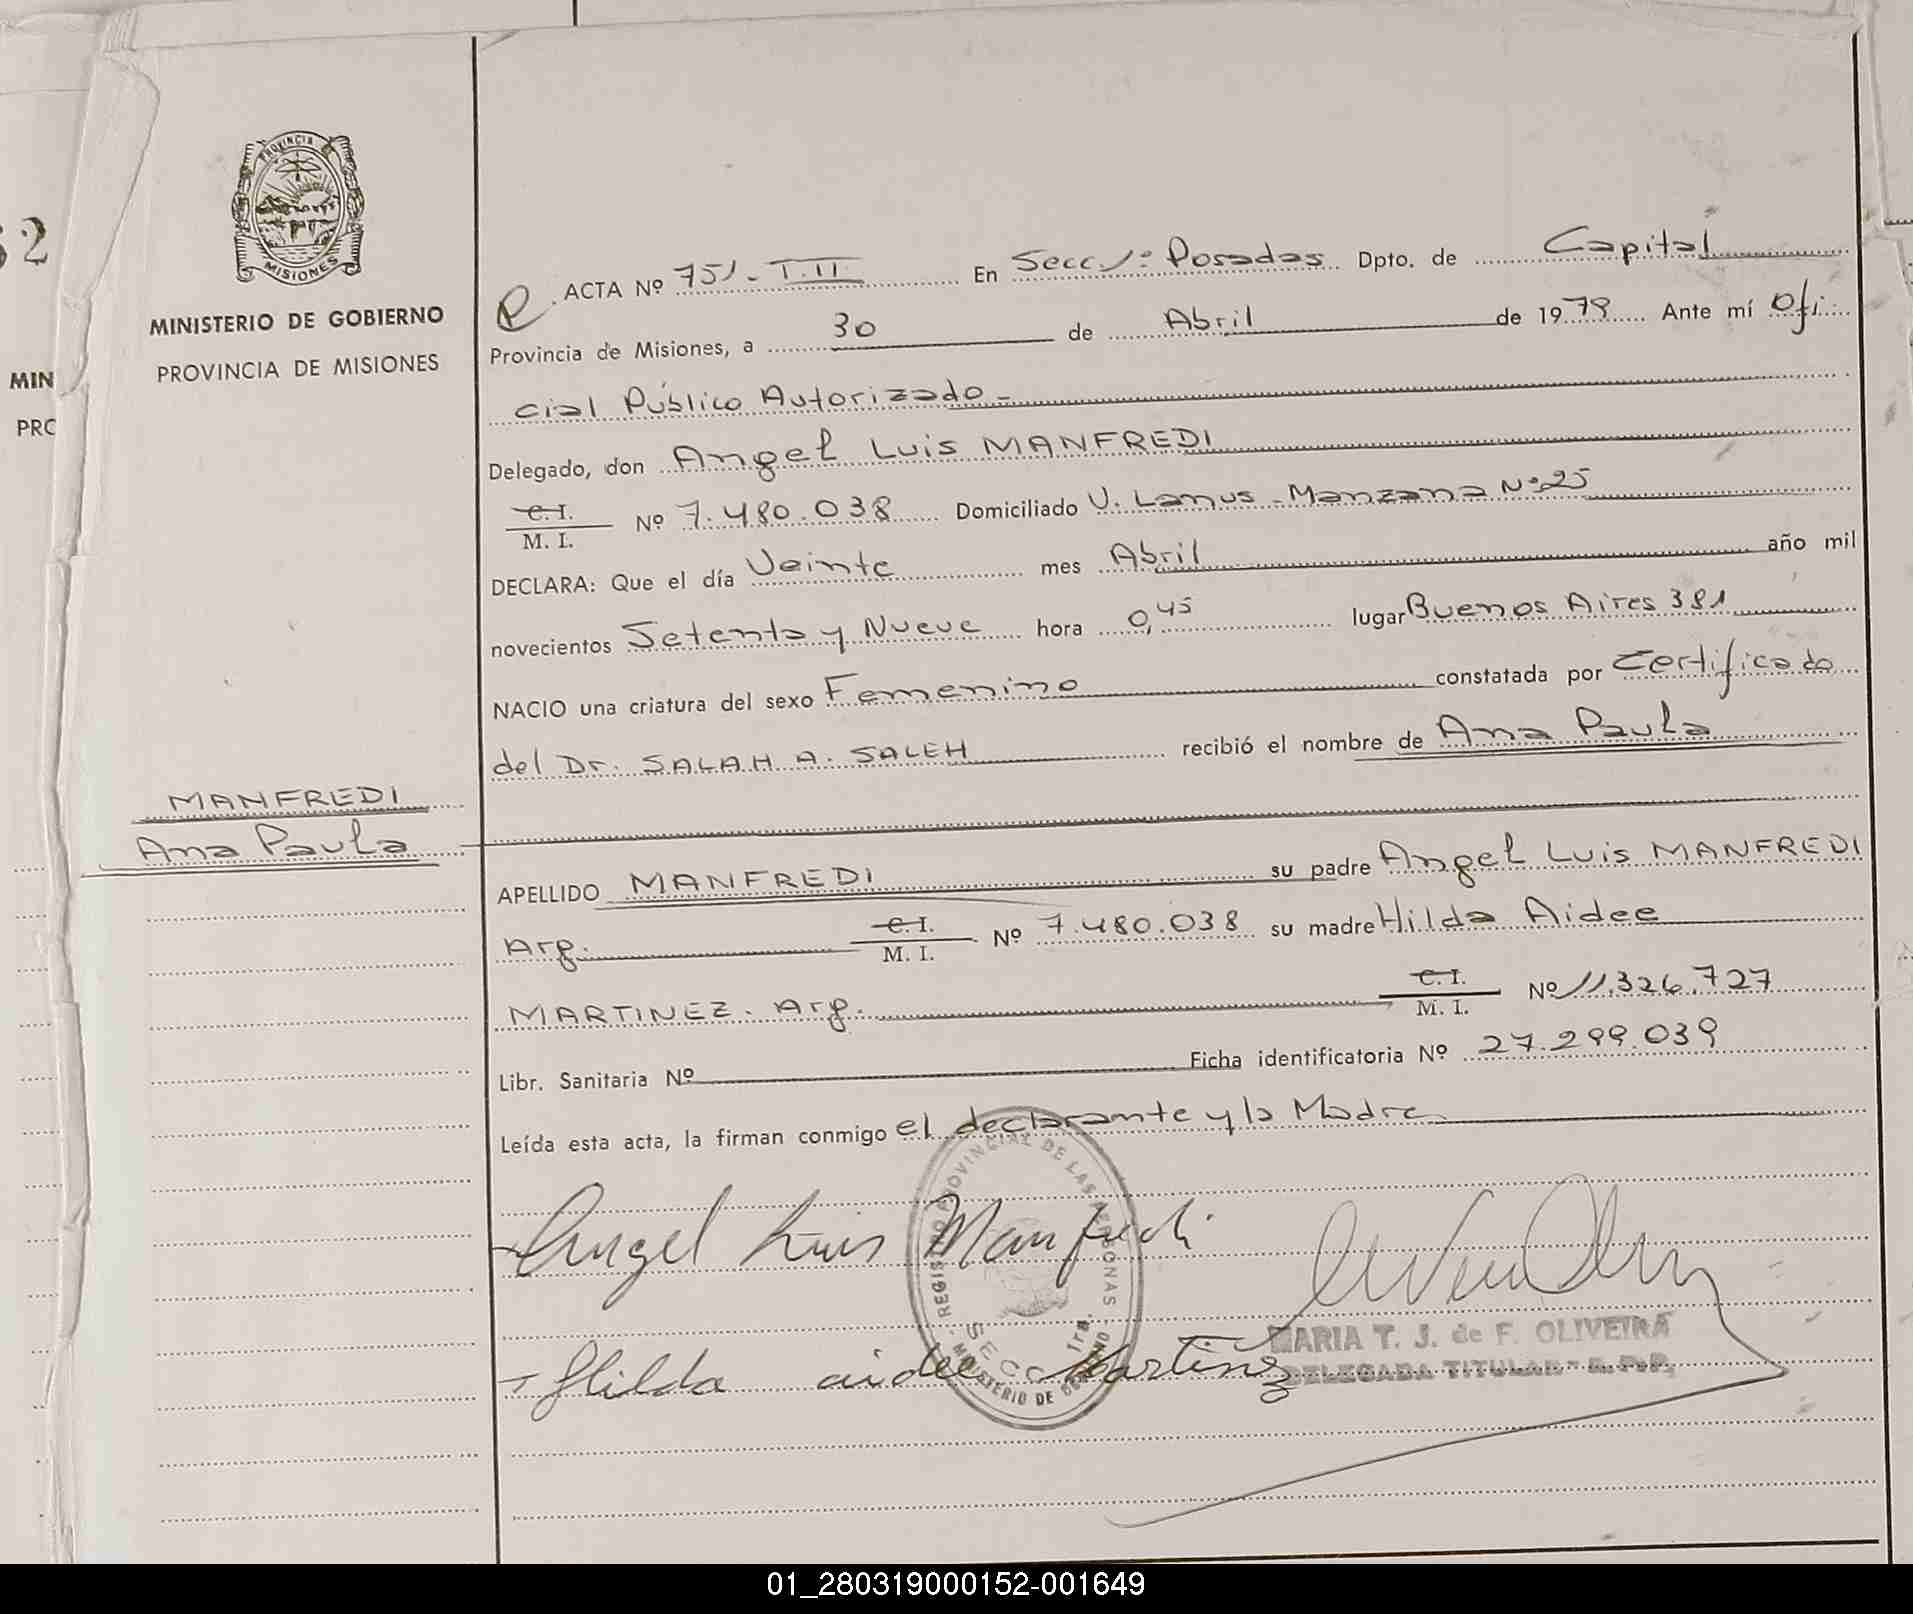 62
MIN
PRC
PROVINCIA DE
MISIONES
MINISTERIO DE GOBIERNO
PROVINCIA DE MISIONES
MANFREDI
Ana Paula
ACTA Nº 751 - T. II. En Secc 1ª Posadas Dpto. de Capital
Provincia de Misiones, a 30 de Abril de 1979 Ante mí Ofi
cial Público Autorizado -
Delegado, don Angel Luis MANFREDI
C. I.
M. I. Nº 7.480.038 Domiciliado V. Lanus - Manzana Nº 25
DECLARA: Que el día Veinte mes Abril año mil
novecientos Setenta y Nueve hora 0,45 lugar Buenos Aires 381
NACIO una criatura del sexo Femenino constatada por Certificado
del Dr. SALAH A. SALEH recibió el nombre de Ana Paula
APELLIDO MANFREDI su padre Angel Luis MANFREDI
Arg. C. I.
M. I. Nº 7.480.038 su madre Hilda Aidee
MARTINEZ. Arg. C. I.
M. I. Nº 11.326.727
Libr. Sanitaria Nº Ficha identificatoria Nº 27.299.039
Leída esta acta, la firman conmigo el declarante y la Madre
Angel Luis Manfredi
REGISTRO PROVINCIAL DE LAS PERSONAS
SECC 1ra.
MINISTERIO DE GOBIERNO
Hilda aidee Martinez
MARIA T. J. de F. OLIVEIRA
DELEGADA TITULAR - R. P. P.
01_280319000152-001649